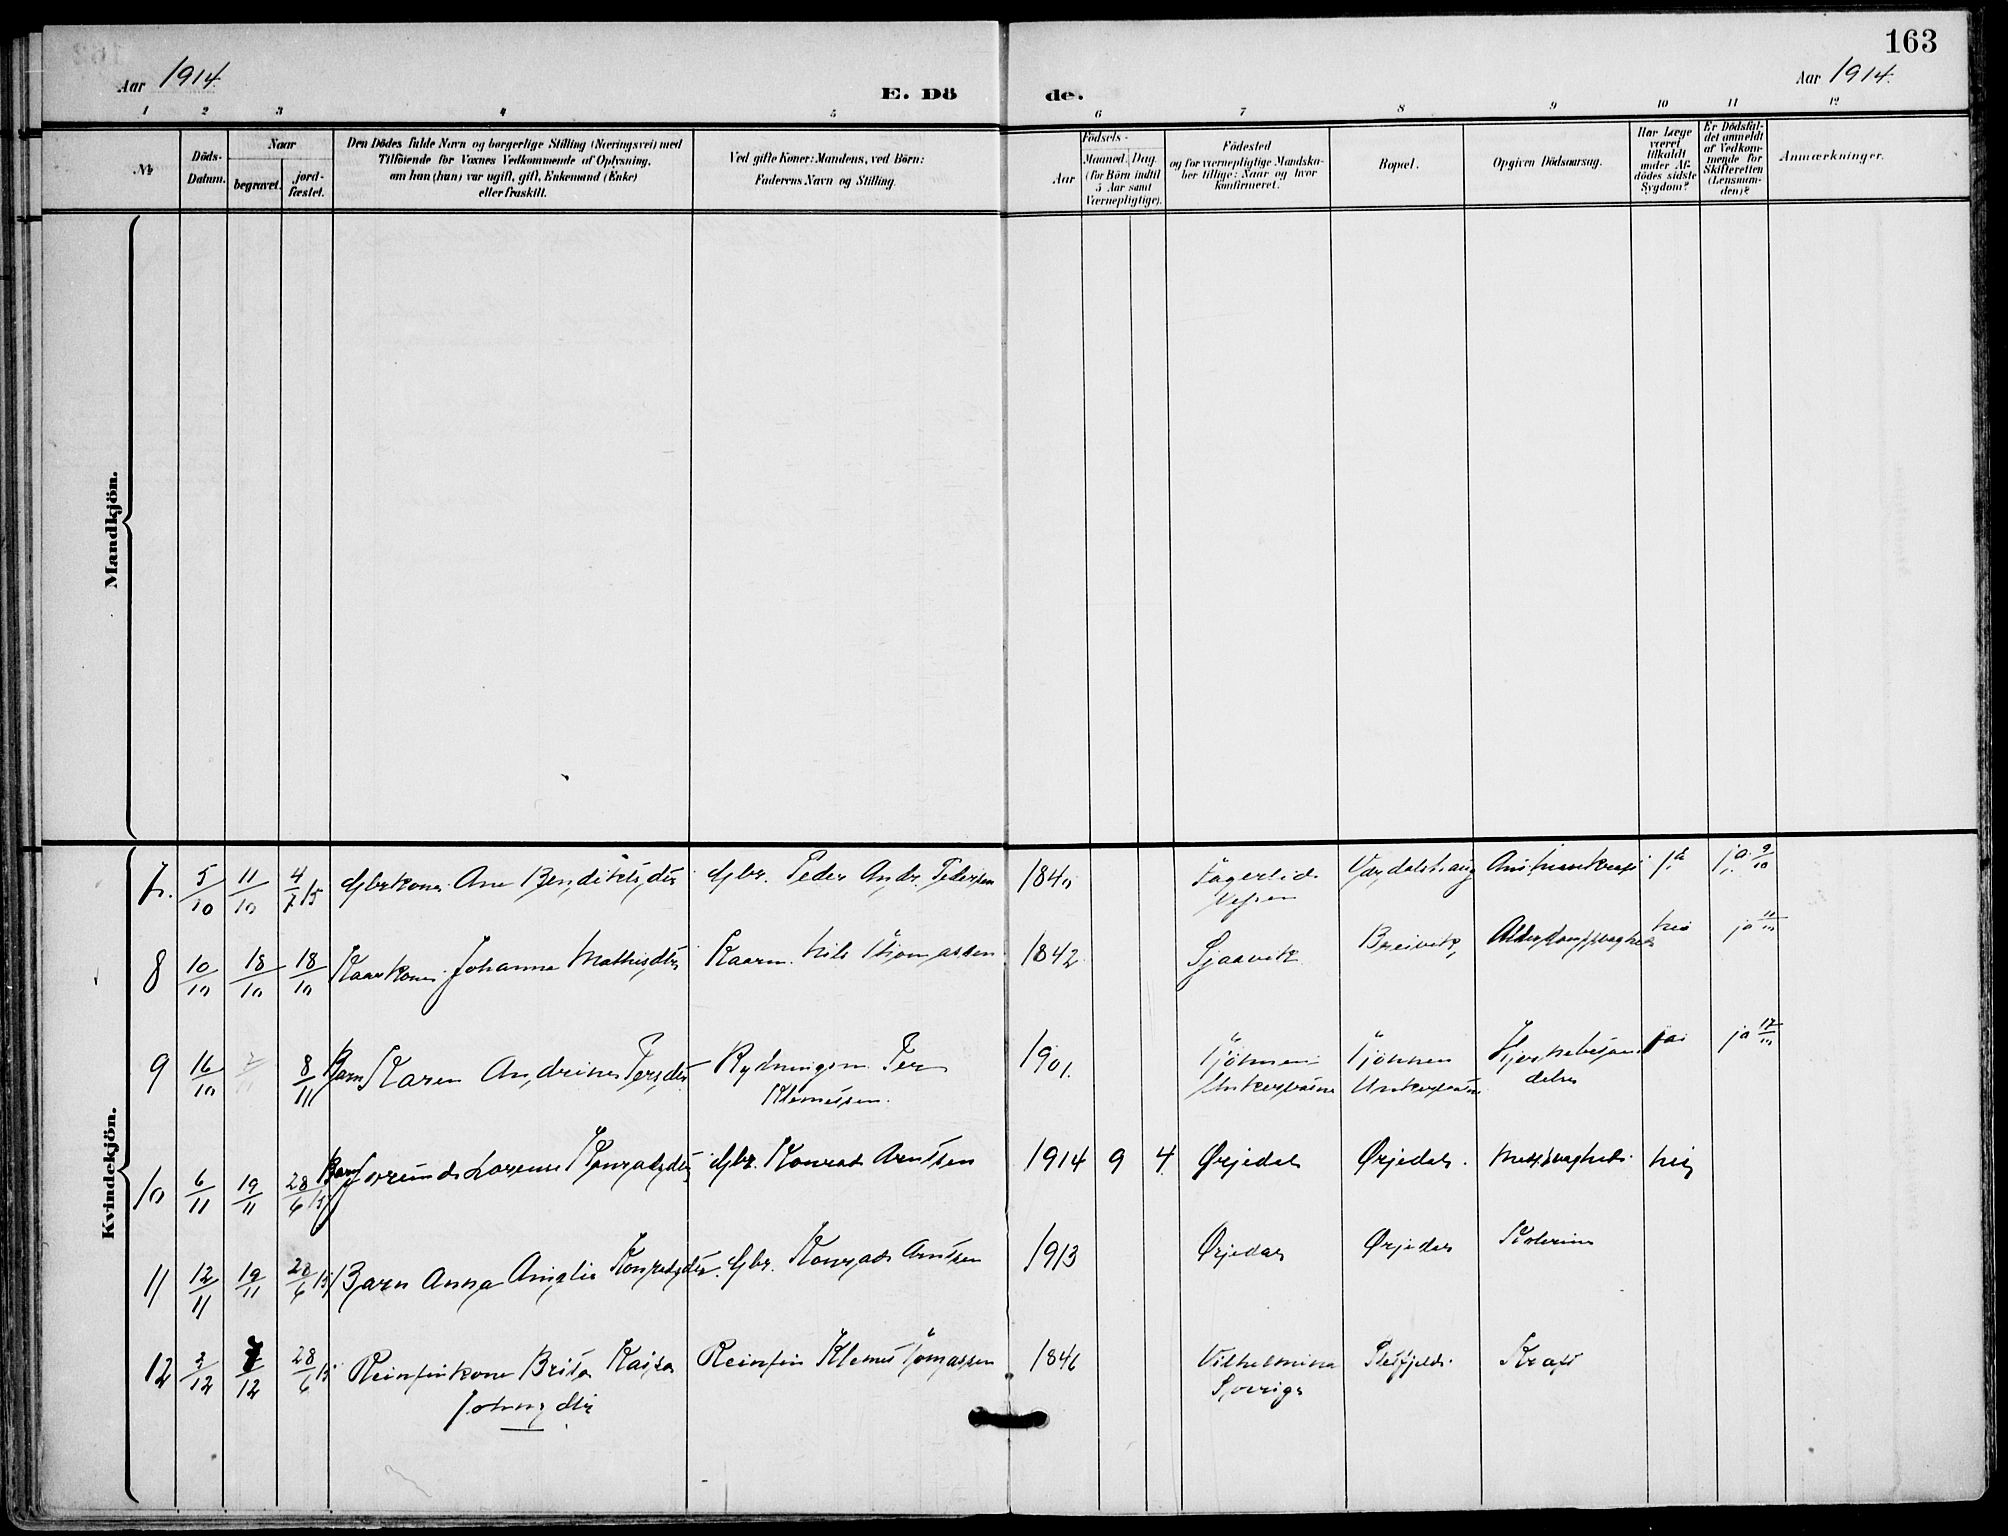 163
Aar 1914.
E. Dö
de.
Aar 1914.
1 2 3 4 5 6 7 8 9 10 11 12
No
Döds-
Datum.
Naar
begravet.
jord-
fæstet.
Den Dödes fulde Navn og borgerlige Stilling (Næringsvei) med
Tilföiende for Voxnes Vedkommende af Oplysning,
om han (hun) var ugift, gift, Enkemand (Enke)
eller fraskilt.
Ved gifte Koner: Mandens, ved Börn:
Faderens Navn og Stilling.
Födsels-
Aar
Maaned. Dag.
(for Börn indtil
5 Aar samt
Værnepligtige).
Födested
og for værnepligtige Mandska-
ber tillige: Naar og hvor
konfirmeret.
Bopæl.
Opgiven Dödsaarsag.
Har Læge
været
tilkaldt
under Af-
dödes sidste
Sygdom?
Er Dödsfal-
det anmeldt
af Vedkom-
mende for
Skifteretten
(Lensman-
den)?
Anmærkninger.
Mandkjön.
Kvindekjön.
7. 5/10 11/10 4/7 15 Gbrkone Ane Bendiktsdtr Gbr. Peder Andr. Pedersen 184 Fagerlid Ja. ja. 9/10
Vefsen
8 10/10 18/10 18/10 Kaarkone Johanna Mathisdtr Kaarm. Nils Thomassen 1842 Sjaavik Breivik Alderdomssvaghed nei ja
9 16/10 8/11 Barn Karen Andrine Persdtr Rydningsm. Per 1901. Tjönnen Tjönnen ja
Klemetsen. Unkervatne Unkervatne
10 6/11 19/11 28/6 15 Barn Jorund Lorense Konradsdtr Gbr. Konrad Arntsen 1914 9 4. Ørjedal Ørjedal. nei
11 12/11 19/11 28/6 15 Barn Anna Amalie Konradsdtr. Gbr. Konrad Arntsen 1913 Ørjedal Ørjedal
12 3/12 7/12 28/6 15 Reinfinkone Brita Kaisa Reinfin Klemet Tomassen 1846 Vilhelmina Kræft
Johnsdtr Sverige